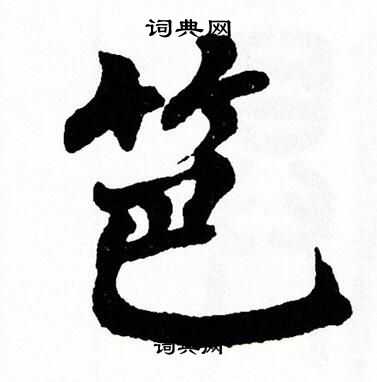 词典网
笆
词典网